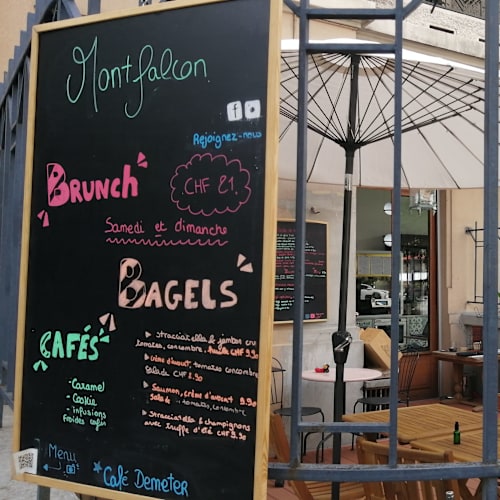 Montfalcon
Rejoignez-nous
BRUNCH
CHF 21.
Samedi et dimanche
BAGELS
CAFÉS
- Caramel
- Cookie
- infusions
froides cafés
stracciatella & jambon cru
tomates, concombre, CHF 9.90
crème d'avocat, tomates concombre
salade CHF 8.90
Saumon, crème d'avocat 9.90
salade, tomates, concombre
Stracciatella & champignons
avec truffe d'été CHF 9.90
Menu
Café Demeter